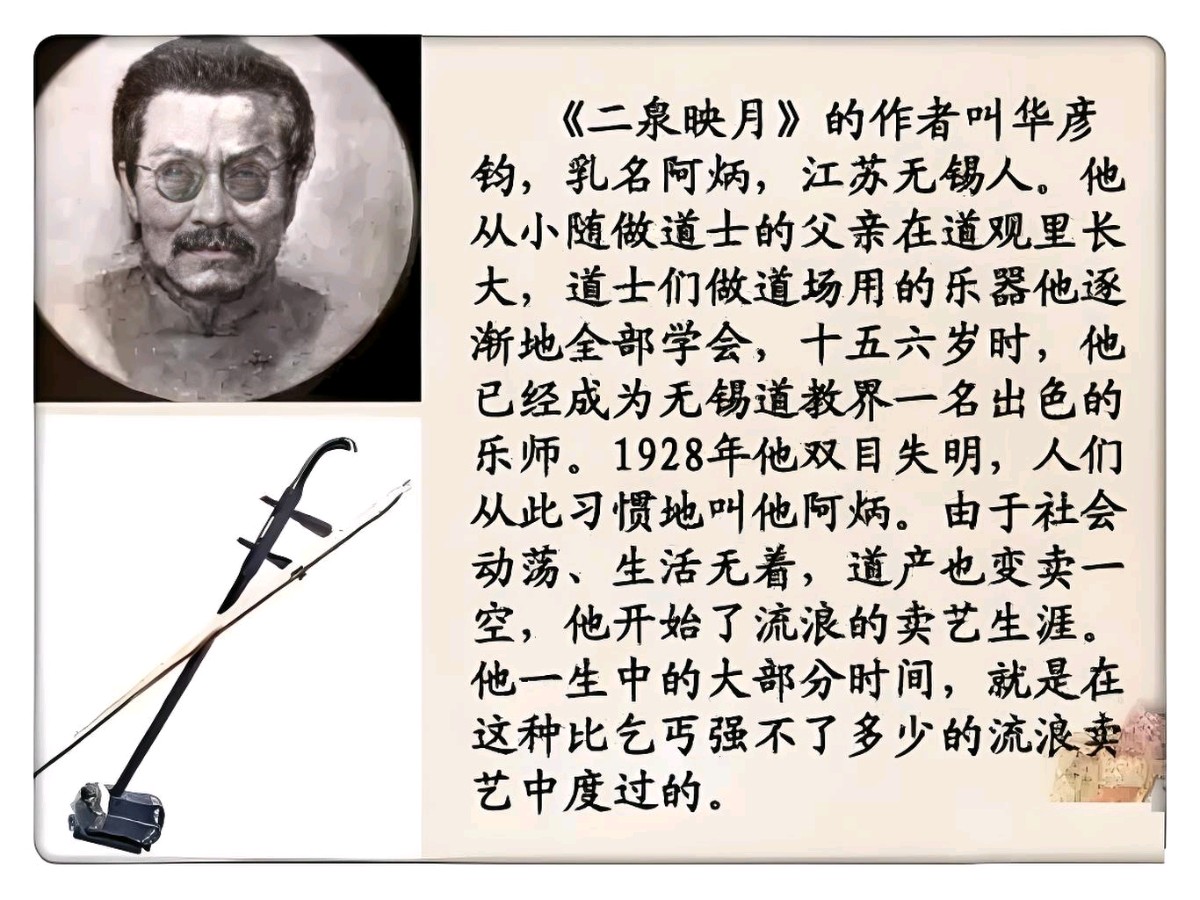 《二泉映月》的作者叫华彦
钧，乳名阿炳，江苏无锡人。他
从小随做道士的父亲在道观里长
大，道士们做道场用的乐器他逐
渐地全部学会，十五六岁时，他
已经成为无锡道教界一名出色的
乐师。1928年他双目失明，人们
从此习惯地叫他阿炳。由于社会
动荡、生活无着，道产也变卖一
空，他开始了流浪的卖艺生涯。
他一生中的大部分时间，就是在
这种比乞丐强不了多少的流浪卖
艺中度过的。